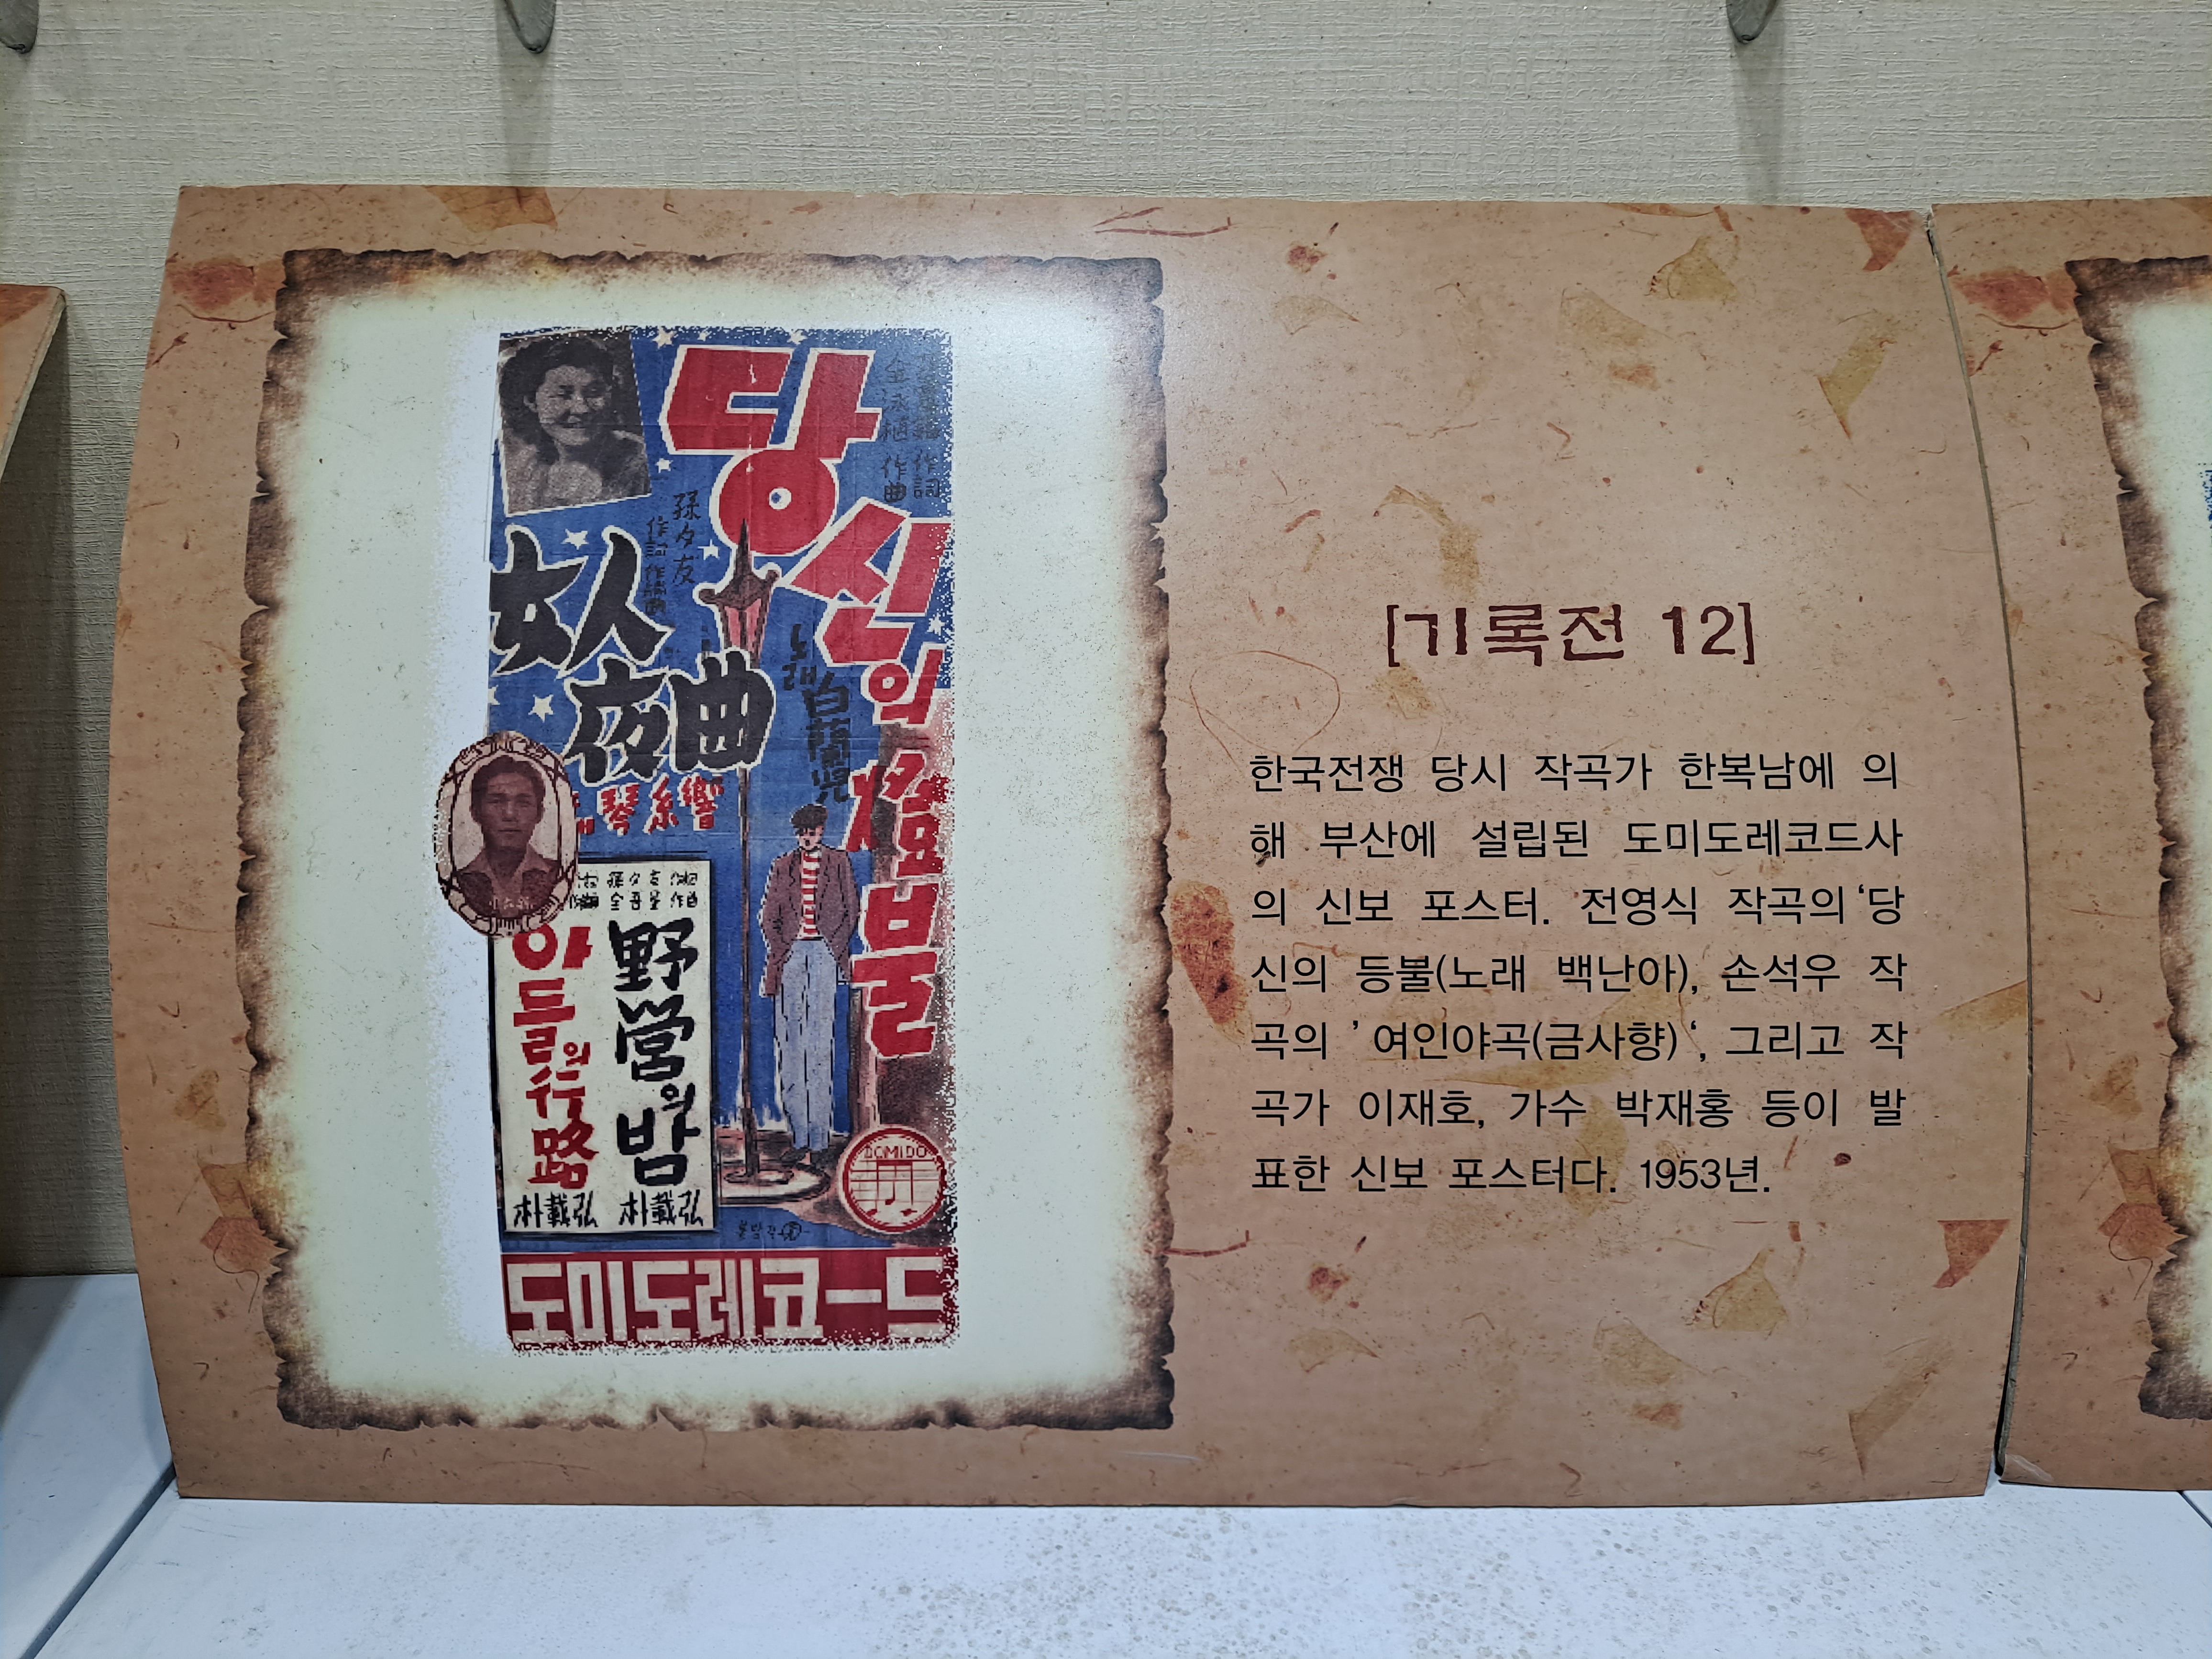 당신의 燈불
作詞
金永植 作曲
노래 白蘭兒
女人夜曲
孫夕友
作詞 作編曲
琴糸響
野營의밤
아들의行路
孫夕友 作詞
作曲
朴載弘
朴載弘
DOMIDO
도미도레코ー드
[기록전 12]
한국전쟁 당시 작곡가 한복남에 의
해 부산에 설립된 도미도레코드사
의 신보 포스터. 전영식 작곡의 ‘당
신의 등불(노래 백난아), 손석우 작
곡의 ’ 여인야곡(금사향) ‘, 그리고 작
곡가 이재호, 가수 박재홍 등이 발
표한 신보 포스터다. 1953년.